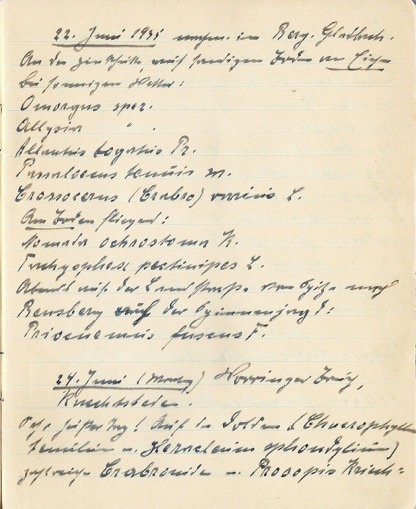 22. Juni 1935 nachm. in Berg. Gladbach.
An der Zinkhütte, auf sandigem Boden an Eichen
bei sonnigem Wetter:
Omorgus spec.
Allysia " .
Allantus togatus Pz.
Passaloecus tenuis M.
Crossocerus (Crabro) varius L.
Am Boden fliegend:
Nomada ochrostoma K.
Trachyphex pectinipes L.
Abends auf der Landstraße von nach
Bensberg auf der Spinnenjagd:
Priocnemis fuscus F.
24. Juni (Montag) Worringer Bruch,
Knechtsteden.
Sehr heißer Tag! Auf den Dolden (Chaerophyllum
temulum u. Heracleum sphondylium)
zahlreiche Crabronide u. Prosopis Kriech-